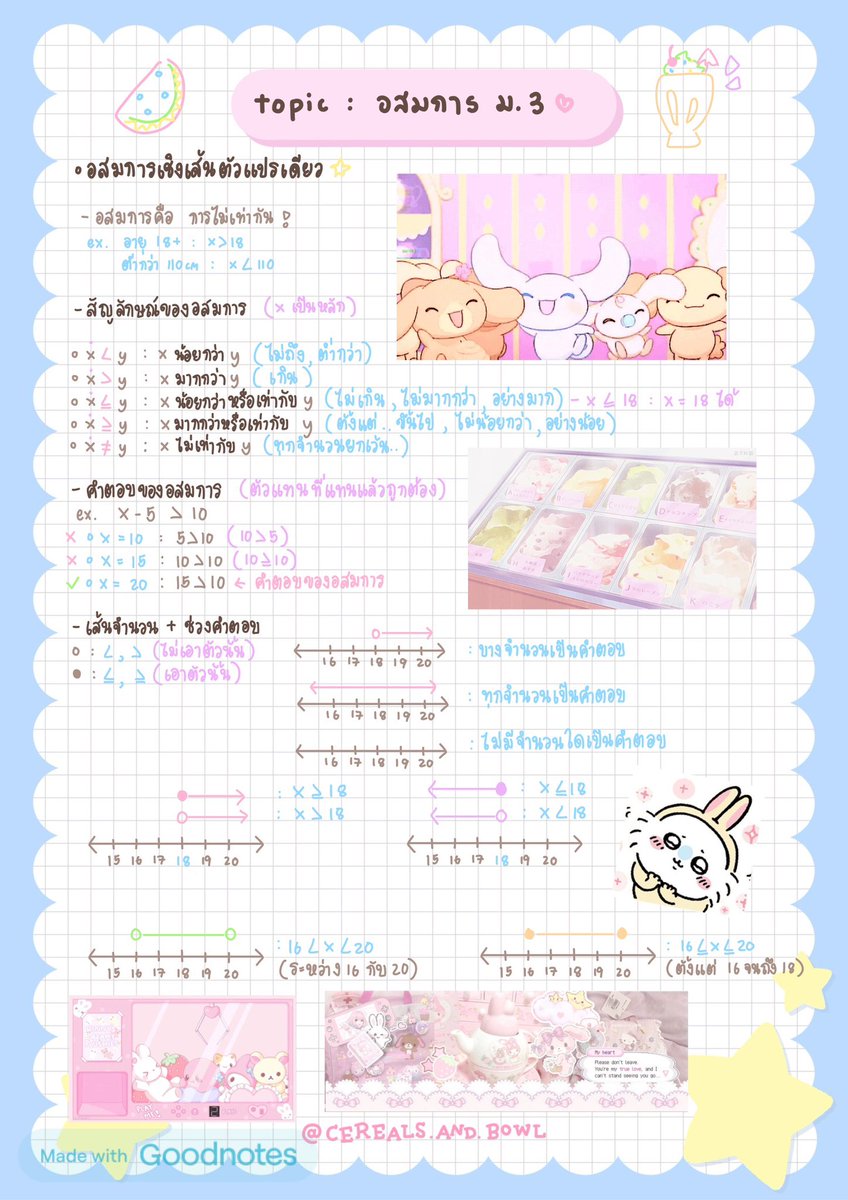 topic : อสมการ ม.3
อสมการเชิงเส้นตัวแปรเดียว
- อสมการคือ การไม่เท่ากัน !
ex. อายุ 18+ : x>18
ต่ำกว่า 110 cm : x<110
- สัญลักษณ์ของอสมการ (x เป็นหลัก)
x < y : x น้อยกว่า y (ไม่ถึง, ต่ำกว่า)
x > y : x มากกว่า y (เกิน)
x ≤ y : x น้อยกว่าหรือเท่ากับ y (ไม่เกิน, ไม่มากกว่า, อย่างมาก) - x ≤ 18 : x = 18 ได้
x ≥ y : x มากกว่าหรือเท่ากับ y (ตั้งแต่..ขึ้นไป, ไม่น้อยกว่า, อย่างน้อย)
x ≠ y : x ไม่เท่ากับ y (ทุกจำนวนยกเว้น..)
- คำตอบของอสมการ (ตัวแทนที่แทนแล้วถูกต้อง)
ex. x - 5 > 10
x = 10 : 5>10 (10>5)
x = 15 : 10>10 (10≥10)
x = 20 : 15>10 ← คำตอบของอสมการ
- เส้นจำนวน + ช่วงคำตอบ
○ : <, > (ไม่เอาตัวนั้น)
● : ≤, ≥ (เอาตัวนั้น)
16 17 18 19 20 : บางจำนวนเป็นคำตอบ
16 17 18 19 20 : ทุกจำนวนเป็นคำตอบ
16 17 18 19 20 : ไม่มีจำนวนใดเป็นคำตอบ
: x ≥ 18
: x > 18
15 16 17 18 19 20
: x ≤ 18
: x < 18
15 16 17 18 19 20
: 16 < x < 20
(ระหว่าง 16 กับ 20)
15 16 17 18 19 20
: 16 ≤ x ≤ 20
(ตั้งแต่ 16 จนถึง 18)
15 16 17 18 19 20
My heart
Please don't leave.
You're my true love, and I
can't stand seeing you go...
@CEREALS.AND.BOWL
Made with Goodnotes